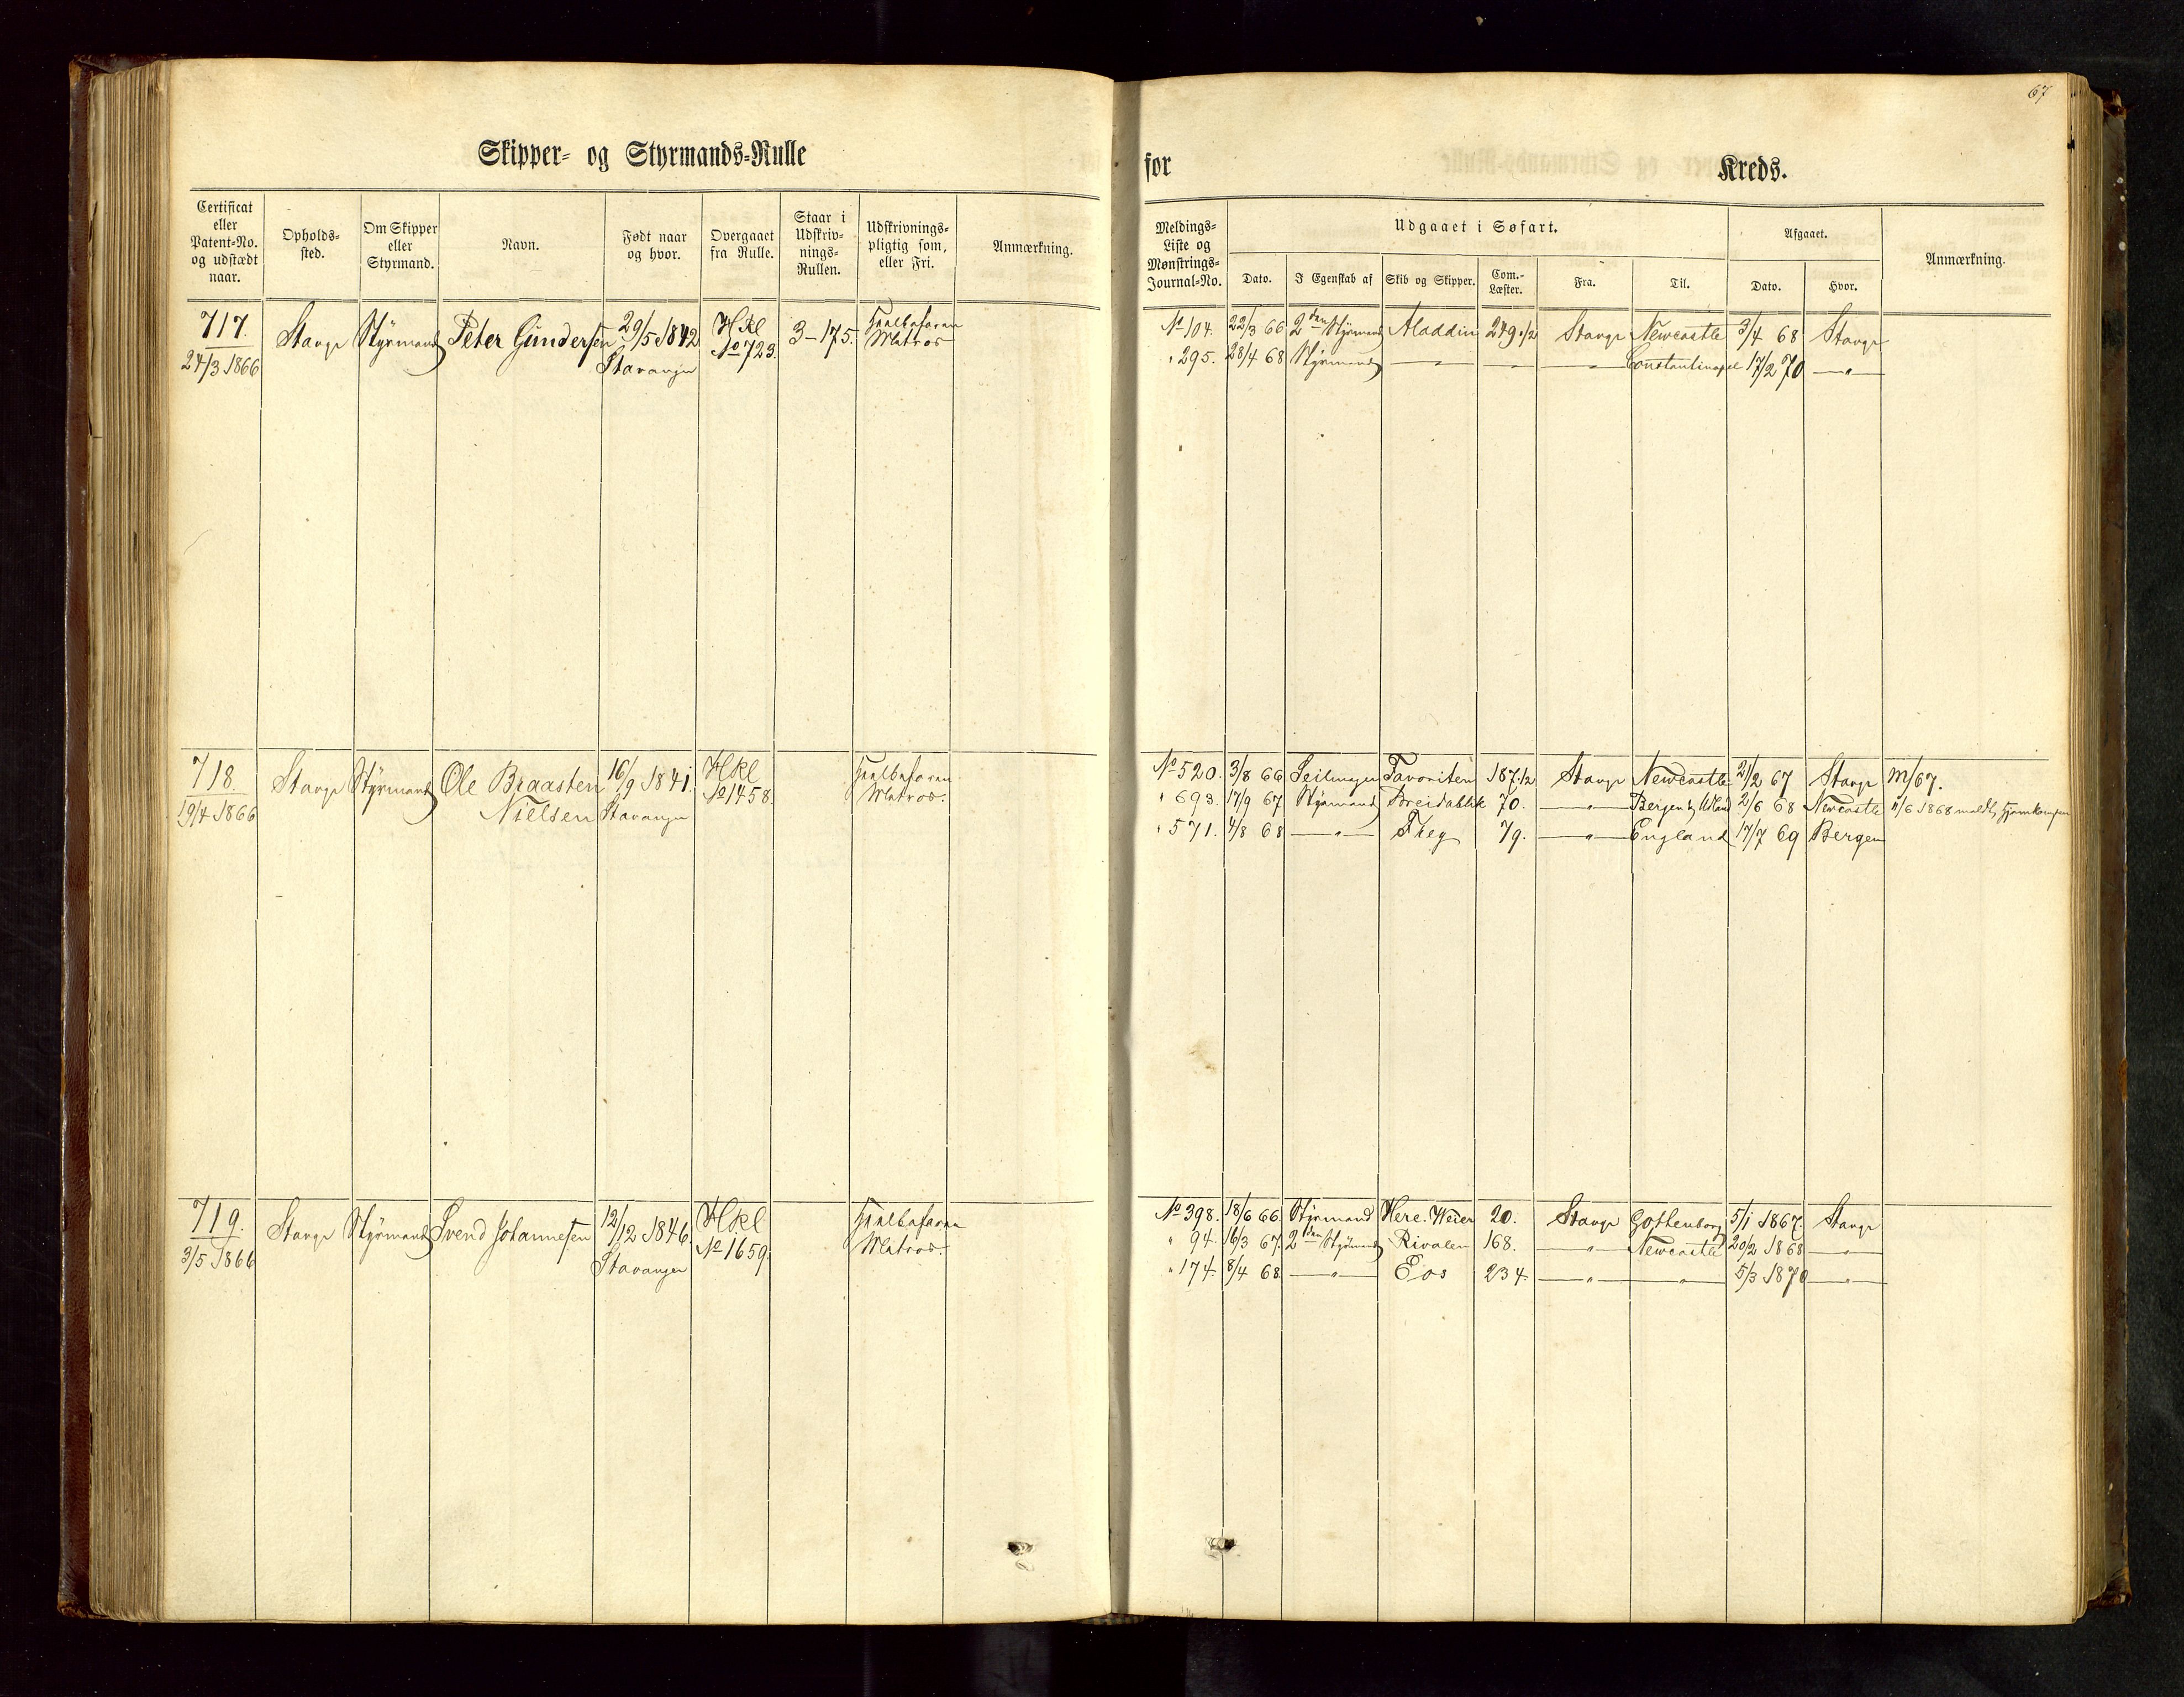 67
Skipper- og Styrmands-Rulle
for Kreds.
Certificat eller Patent-No. og udstædt naar.
Opholds-sted.
Om Skipper eller Styrmand.
Navn.
Født naar og hvor.
Overgaaet fra Rulle.
Staar i Udskriv-nings-Rullen.
Udskrivnings-pligtig som, eller Fri.
Anmærkning.
Meldings-Liste og Mønstrings-Journal-No.
Udgaaet i Søfart.
Dato.
I Egenskab af
Skib og Skipper.
Com.-Læster.
Fra.
Til.
Afgaaet.
Dato.
Hvor.
Anmærkning.
717. Stavgr Styrmand Peter Gundersen 29/5 1842 Hkl 3-175. Matros
24/3 1866 Stavanger No 723.
No 104. 22/3 66 2den Styrmand Aladdin 249 1/2 Stavgr Newcastle 3/4 68 Stavgr
" 295. 28/4 68 Styrmand — " — — — " — Constantinopel 17/2 70 — " —
718. Stavgr Styrmand Ole Braasten 16/9 1841. Hkl
19/4 1866 Nielsen Stavanger No 1458. Matros.
No 520. 3/8 66 Favoriten 187 1/2 Stavgr Newcastle 21/2 67 Stavgr M/67.
" 693. 17/9 67 Styrmand Breidablik 70. — " — Bergen & Udland 2/6 68 Newcastle 11/6 1868 meldt hjemkommen
" 571. 4/8 68 — " — Theg 79. — " — England 17/7 69 Bergen
719. Stavgr Styrmand Svend Johannesen 12/12 1846. Hkl
3/5 1866 Stavanger No 1659. Matros.
No 398. 18/6 66. Styrmand Here. Weder 20. Stavgr Gothenborg 5/1 1867. Stavgr
" 94. 16/3 67. 2den Styrmand Rivalen 168. — " — Newcastle 20/2 1868 — " —
" 174. 8/4 68 — " — Eos 234. — " — — " — 5/3 1870 — " —